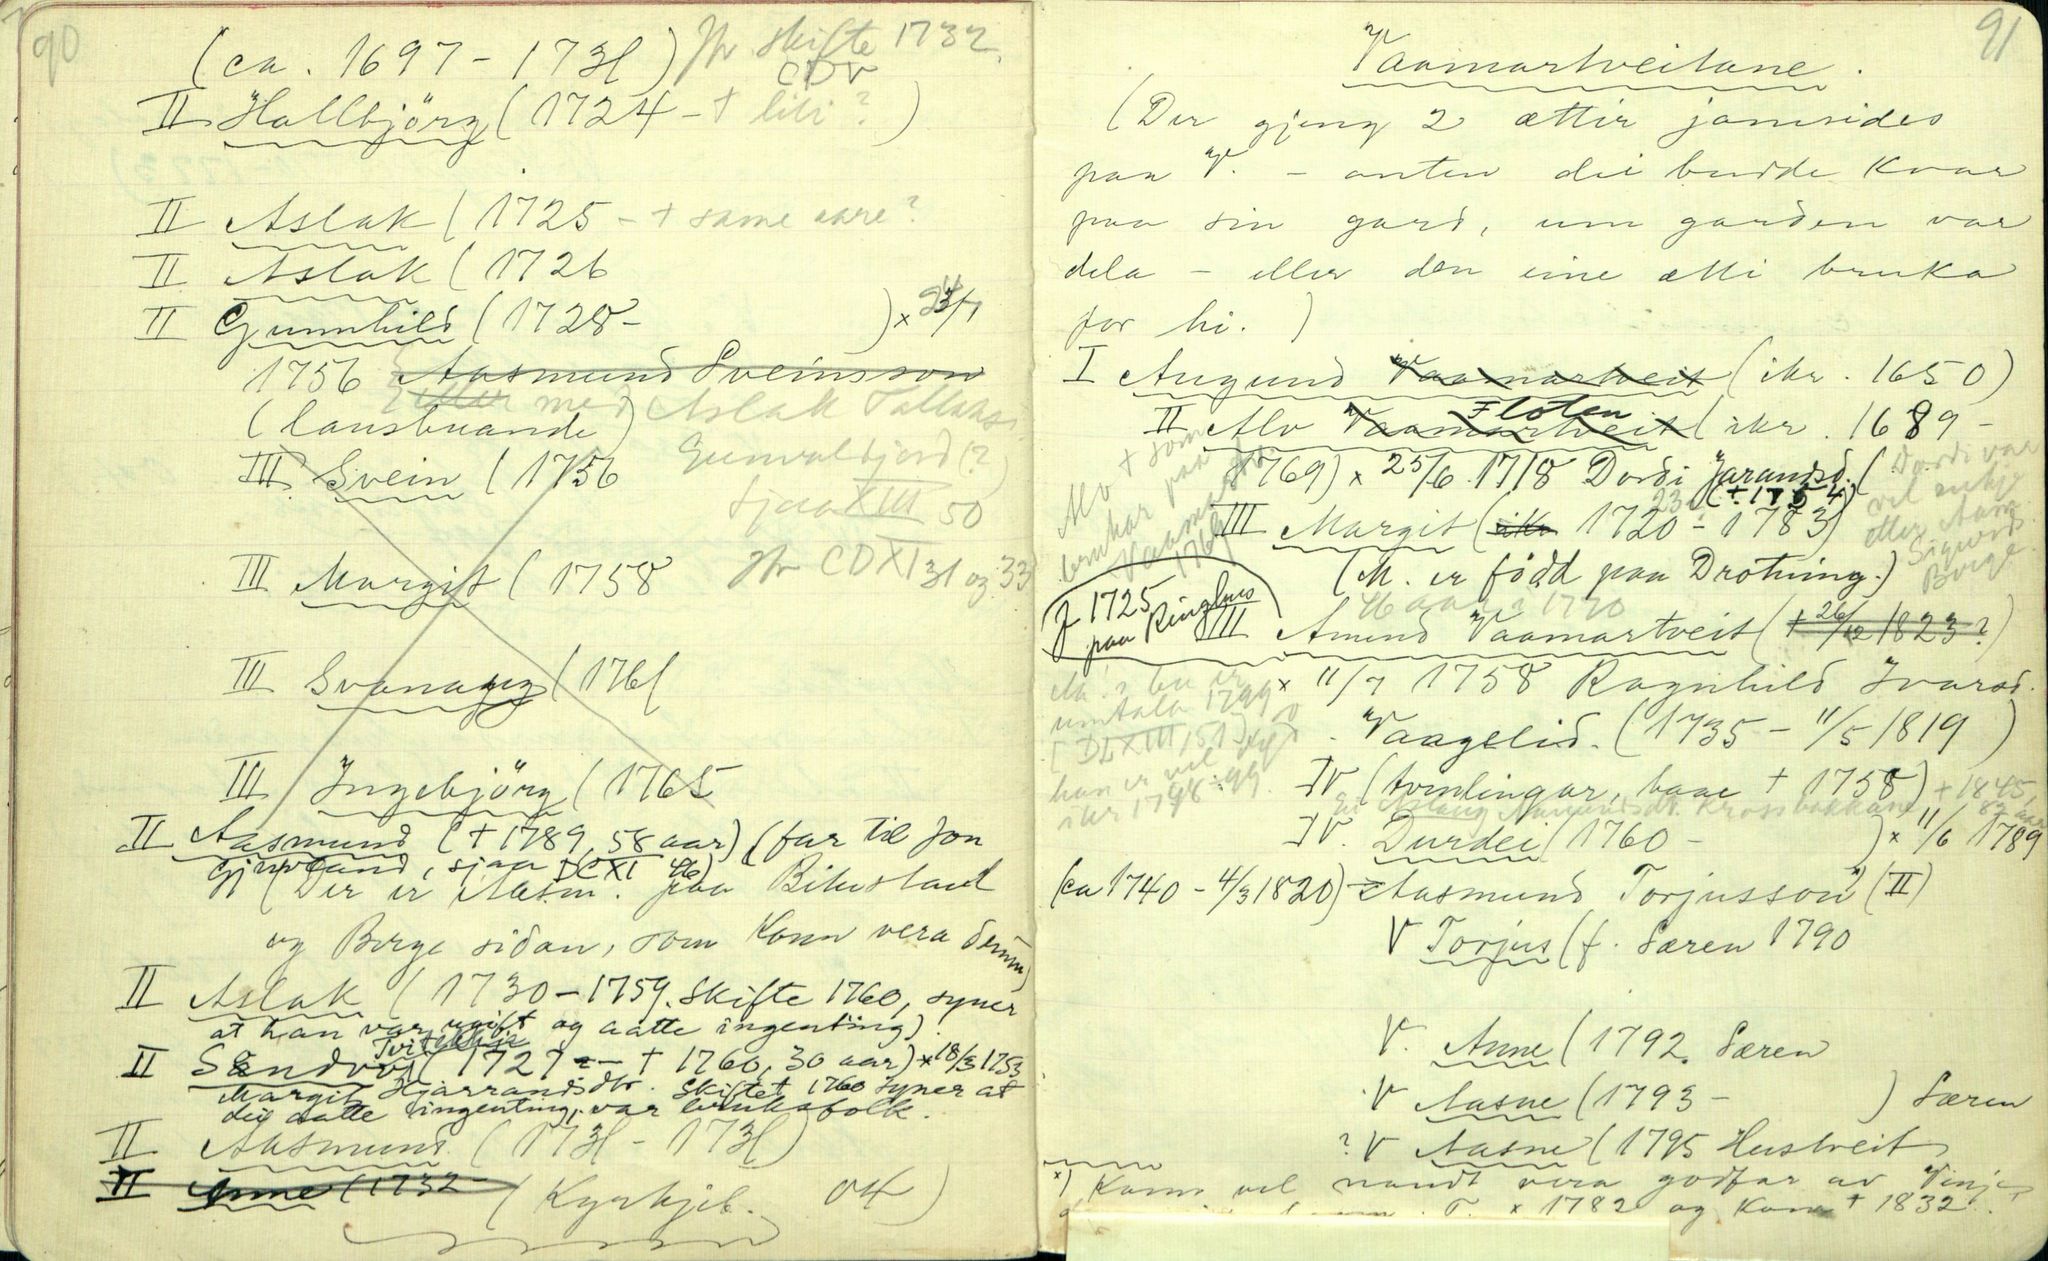 90
(ca. 1697 - 1731) Jfr skifte 1732
CDV
II Hallbjörg (1724 - + liti?)
II Aslak (1725 - + same aare?
II Aslak (1726
II Gunnhild (1728 - ) x
1756 Aasmund Sveinsson
med Aslak
(lausbuande)
III Svein (1756
Sjaa XIII 50
III Margit (1758 Jfr CDXI 31 og 33
III Svanaug (1761
III Ingebjörg (1765
II Aasmund (+ 1789, 58 aar) (far til Jon
sjaa DCXI 46)
(Der er Aasm. paa Bikustaul
og Berge sidan, som kann vera denne)
II Aslak (1730 - 1759. Skifte 1760, syner
at han var ugift og aatte ingenting).
II Sandver (1727 - + 1760, 30 aar) x 18/3 1753
Margit Hjarrandsdtr. Skiftet 1760 syner at
dei aatte ingenting, var bruksfolk.
II Aasmund (1731 - 1731)
II Anne (1732 - (Kyrkjeb. 04)
91
Vaamartveitane.
(Der gjeng 2 ættir jamsides
paa V. - anten dei budde kvar
paa sin gard, um garden var
dela - eller den eine ætti bruka
for hi.)
I Augund Vaamartveit (ikr. 1650)
Floten
II Alv Vaamartveit (ikr. 1689 -
1769) x 25/6 1718 Dordi Jarandsd. (
(+ 1754)
Alv + som
brukar paa
Vaamar
1769
Dordi var
vel enkje
etter Aasm.
Sigurds.
Berge.
III Margit (ikr 1720 - 1783)
(M. er född paa Drotning.)
f 1725
paa Ringhus
III Amund Vaamartveit (+ 26/12 1823?)
x 11/7 1758 Ragnhild Ivarsd.
Vaagelid. (1735 - 11/5 1819)
umtala 1799
han er vel
ikr 1798-99.
IV (tvillingar, baae + 1758)
+ 1845,
IV. Durdei (1760 - ) x 11/6 1789
(ca 1740 - 4/3 1820) Aasmund Torjusson (II)
V Torjus (f. Særen 1790
V. Anne (1792. Særen
V Aasne (1793 - ) Særen
? V Aasne (1795 Hustveit
x) Kann vel naudt vera godfar av Vinje,
T. x 1782 og Kona + 1832.